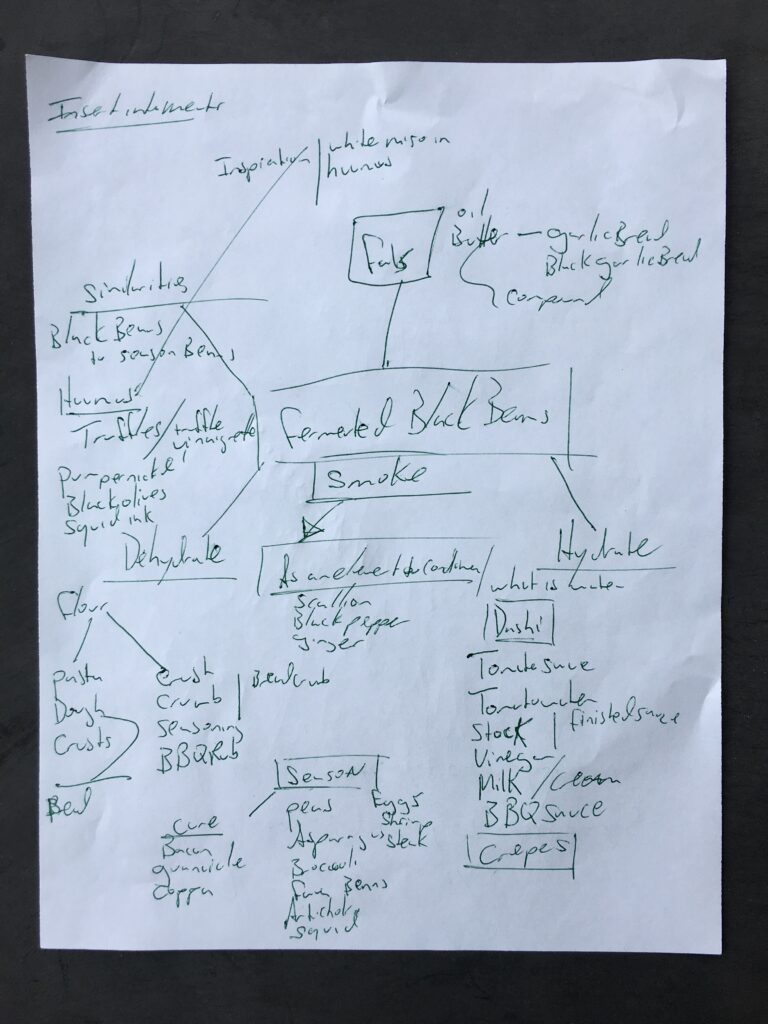 Insert
Inspiration
white miso in
humus
Fats
oil
Butter — garlic Bread
Black garlic Bread
Compound
Similarities
Black Beans
to season Beans
Humus
Truffles / truffle
vinaigrette
Pumpernickel
Black olives
Squid ink
Fermented Black Beans
Smoke
Dehydrate
Hydrate
As an element
Scallion
Black pepper
ginger
what is water
Dashi
Tomato sauce
Tomato water
Stock | finished sauce
Vinegar
Milk / Cream
BBQ sauce
Crepes
Flour
pasta
Dough
Crusts
Bread
Crust
Crumb | Bread crumb
Seasoning
BBQ Rub
Season
Cure
Bacon
guanciale
Coppa
peas
Asparagus
Broccoli
Fava Beans
Artichoke
squid
Eggs
Shrimp
Steak